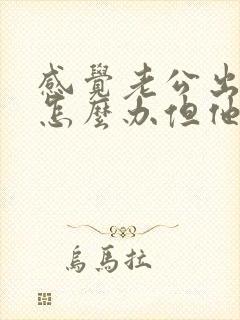 感覺老公出
怎麼办但他
烏馬拉